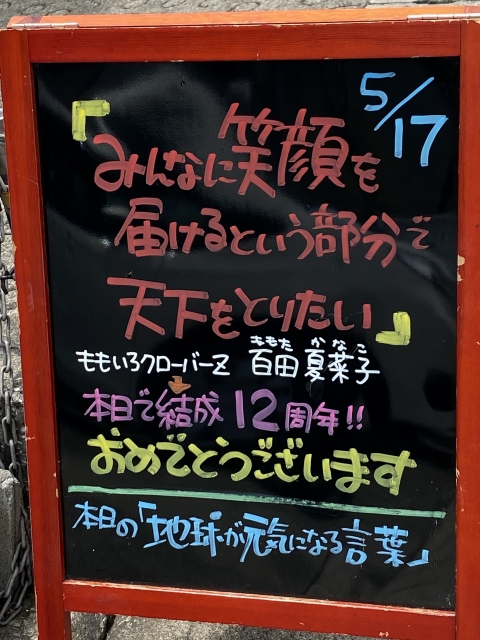 5/17
「みんなに笑顔を
届けるという部分で
天下をとりたい」
ももいろクローバーZ 百田夏菜子
ももた かなこ
↓
本日で結成12周年!!
おめでとうございます
本日の「地球が元気になる言葉」